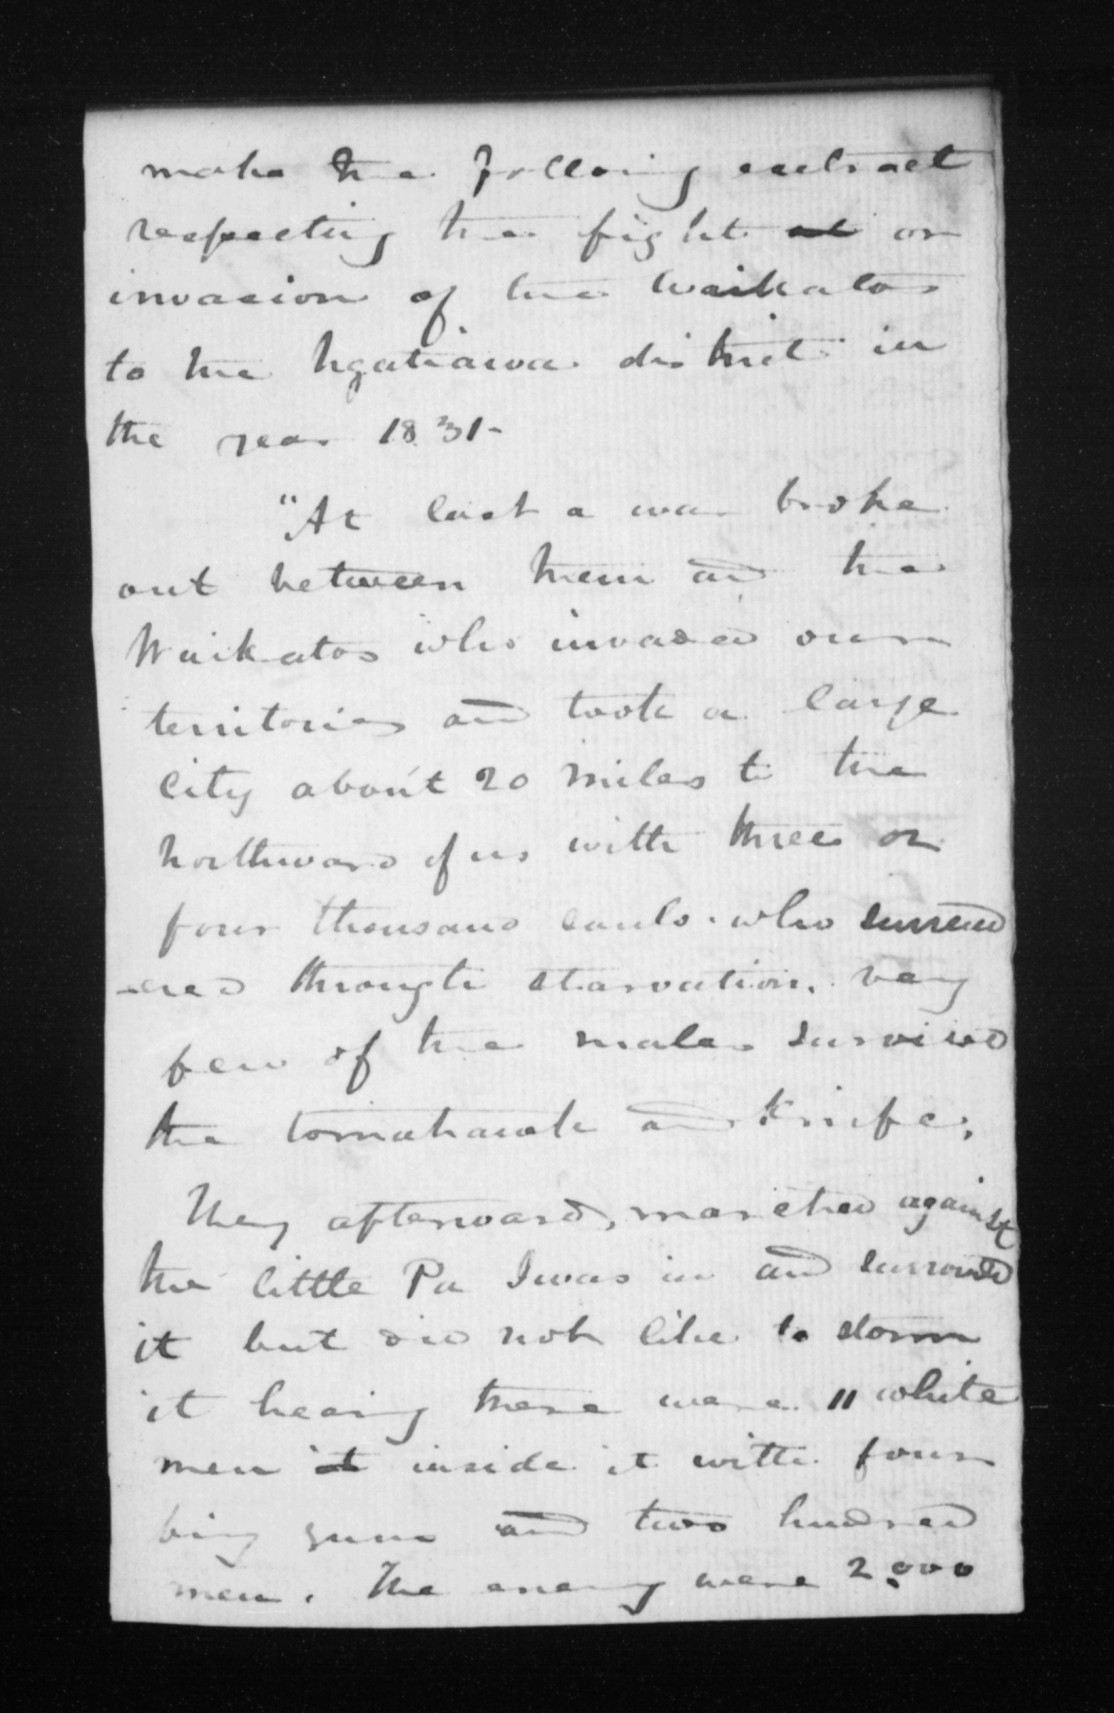 make the following extract
respecting the fight at or
invasion of the Waikatos
to the Ngatiawa district in
the year 1831-
"At last a war broke
out between them and the
Waikatos who invaded our
territories and took a large
city about 20 miles to the
Northward of us with three or
four thousand souls. who surrend
-ered through starvation. very
few of the males survived
the tomahawk and Knife.
They afterward, marched against
the little Pa I was in and surround
it but did not like to storm
it hearing there were 11 white
men at inside it with four
big guns and two hundred
men. The enemy were 2.000